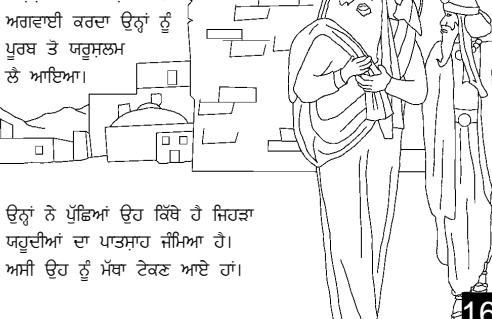 ਅਗਵਾਈ ਕਰਦਾ ਉਨ੍ਹਾਂ ਨੂੰ
ਪੂਰਬ ਤੋ ਯਰੂਸ਼ਲਮ
ਲੈ ਆਇਆ।
ਉਨ੍ਹਾਂ ਨੇ ਪੁੱਛਿਆਂ ਉਹ ਕਿੱਥੇ ਹੈ ਜਿਹੜਾ
ਯਹੂਦੀਆਂ ਦਾ ਪਾਤਸ਼ਾਹ ਜੰਮਿਆ ਹੈ।
ਅਸੀ ਉਹ ਨੂੰ ਮੱਥਾ ਟੇਕਣ ਆਏ ਹਾਂ।
16